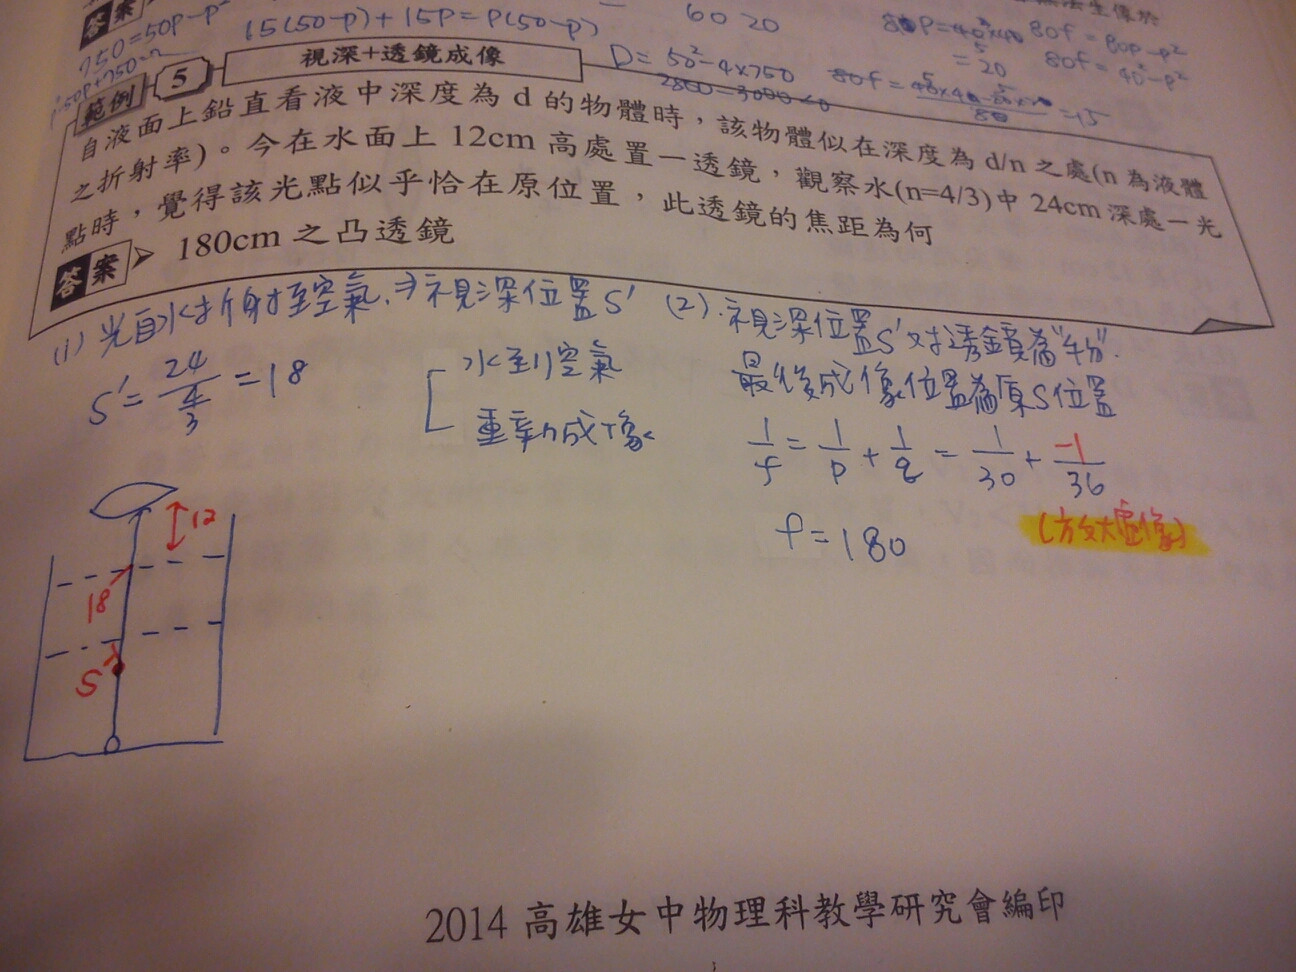 答案
750=50p-p²
15(50-p)+15p=p(50-p)
60 20
80f=80p-p²
D=50²-4×750
2800-3000<0
=20
80f=40²-p²
=15
範例 5 視深+透鏡成像
自液面上鉛直看液中深度為 d 的物體時，該物體似在深度為 d/n 之處(n 為液體
之折射率)。今在水面上 12cm 高處置一透鏡，觀察水(n=4/3)中 24cm 深處一光
點時，覺得該光點似乎恰在原位置，此透鏡的焦距為何
答案 180cm 之凸透鏡
(1) 光自水折射至空氣，⇒視深位置S'
S'=24/(4/3)=18
水到空氣
重新成像
(2).視深位置S'對透鏡為"物".
最後成像位置為原S位置
1/f=1/p+1/q=1/30+-1/36
(放大虛像)
f=180
12
18
S
2014 高雄女中物理科教學研究會編印